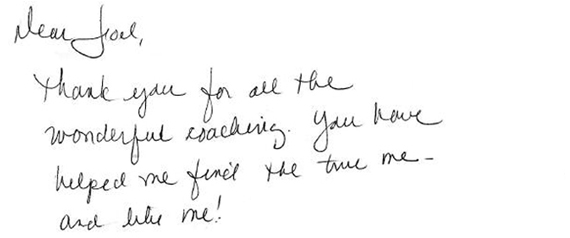 Dear Joel,
Thank you for all the
wonderful coaching. You have
helped me find the true me –
and like me!